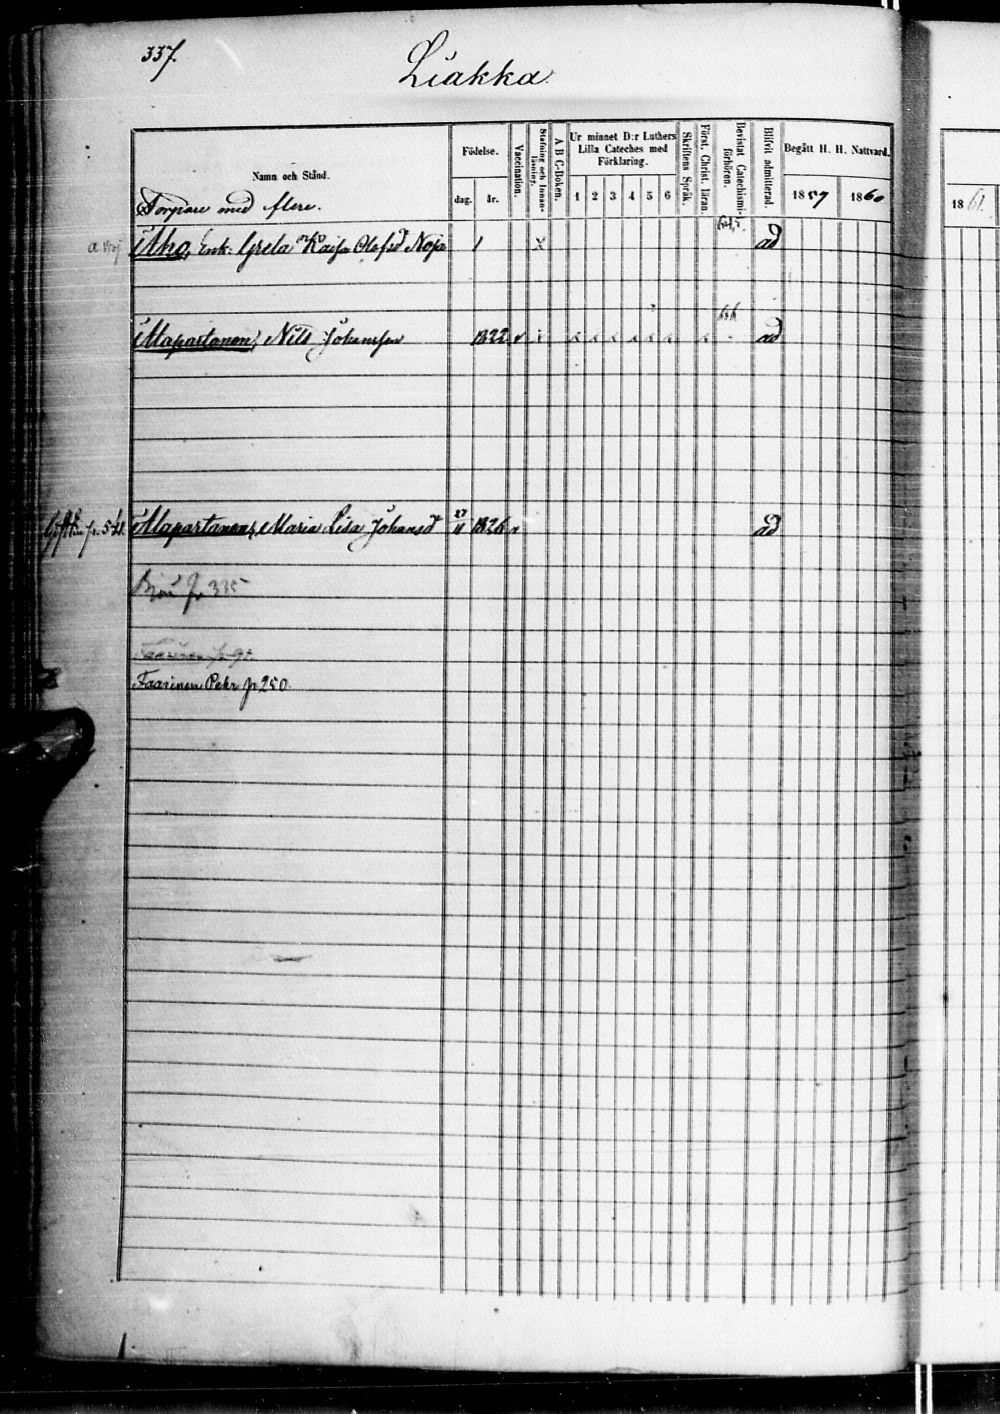 337.
Liakka
Namn och Stånd.
Födelse.
dag.
år.
Vaccination.
Stafning och Innanläsning.
A B C-Boken.
Ur minnet D:r Luthers Lilla Cateches med Förklaring.
1 2 3 4 5 6
Skriftens Språk.
Först. Christ. läran.
Bevistat Catechismi-förhören.
Blifvit admitterad.
Begått H. H. Nattvard.
1857
1860
1861.
Torpare med flere.
Aho, Enk: Greta Kaisa Olofsd Noja 1 x ad
Mapartanen, Nils Johansson 1822 v ad
fr. 541. Mapartanen, Maria Lisa Johansd 27/11 1826 v ad
p 335
Taarinen p 9
Taarinen Pehr p 250.